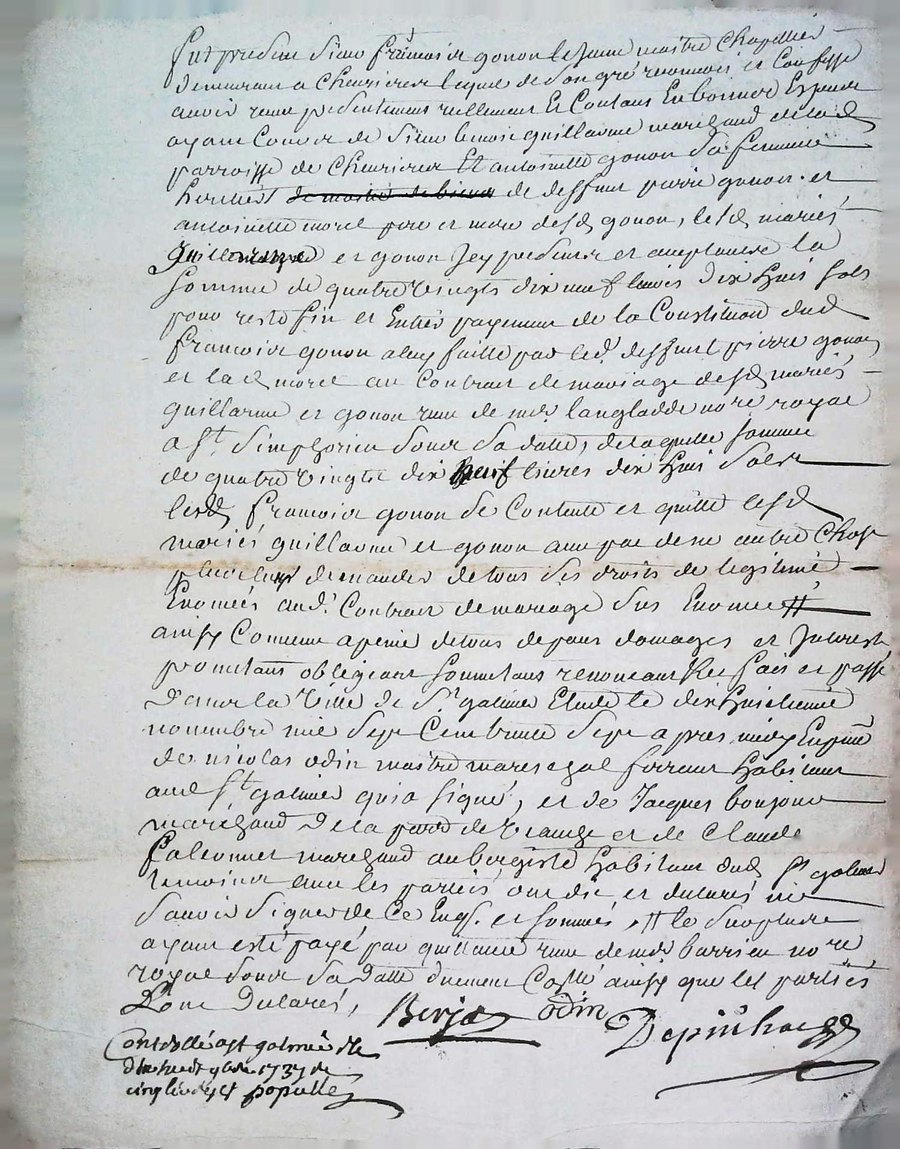 fut present sieur françois gonon le jeune maitre chapellier
demeurant a chevrieres lequel de son gré reconnoit et confesse
avoir receu presentement reellement et contant en bonnes especes
ayant cours de sieur benoit guillaume marchand de lad
parroisse de chevrieres et antoinette gonon sa femme
heritiers de deffunt pierre gonon et
antoinette morel pere et mere desd gonon, lesd mariés
guillaume et gonon icy presents et acceptants la
somme de quatre vingts dix neuf livres dix huit sols
pour reste fin et entier payement de la constitution dud
françois gonon a luy faitte par led deffunt pierre gonon
et lad morel au contrat de mariage desd mariés
guillaume et gonon receu de me langladde nore royal
a st simphorien sous sa datte, de laquelle somme
de quatre vingts dix neuf livres dix huit sols
led françois gonon se contente et quitte lesd
mariés guillaume et gonon avec pacte de ne autre chose
plus leur demander de tous ses droits de legitime
enoncés aud contrat de mariage sus enoncé #
ainsy comme a peine de tous depens domages et interests
promettans obligeans soumettans renonceant &c fait et passé
dans la ville de st galmier etude le dix huitieme
novembre mil sept cent trente sept apres midy en presence
de nicolas odin maitre marechal ferrant habitant
aud st galmier qui a signé, et de jacques bonjour
marchand de la parr de et de claude
falconnet marchand aubergiste habitant dud st galmier
temoins avec les parties ont dit et declaré ne
savoir signer de ce enqs et sommés, # le surplus
ayant esté payé par quittance receue de me barrieu nore
royal sous sa datte ainsy que les parties
l'ont declarés,
Berjat odin Depinhac
Controllé a st galmier le
dix huit 9bre 1737 re
cinq livres populle